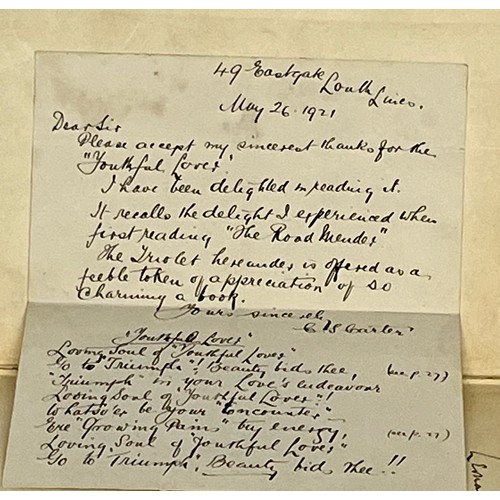 49 Eastgate Louth Lincs.
May 26. 1921
Dear Sir
Please accept my sincerest thanks for the
"Youthful Lover".
I have been delighted in reading it.
It recalls the delight I experienced when
first reading "The Road Mender"
The Triolet hereunder is offered as a
feeble token of appreciation of so
charming a book.
Yours sincerely
C S Carter
"Youthful Lover"
Loving Soul of "Youthful Lover"
Go to "Triumph"! Beauty bids thee, (see p. 27)
"Triumph" in your Love's endeavour
Loving Soul of "Youthful Lover"!
Whatso'er be your "Encounter"
Ere "Growing Pains" thy energy, (see p. 27)
Loving Soul of "Youthful Lover"
Go to "Triumph", Beauty bids thee!!